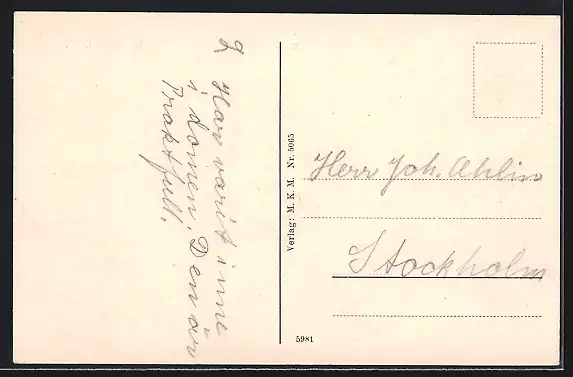 2 Har varit inne
i domen. Den är
Praktfull.
Verlag: M. K. M. Nr. 5065
Herr Joh. Ahlin
Stockholm
5981